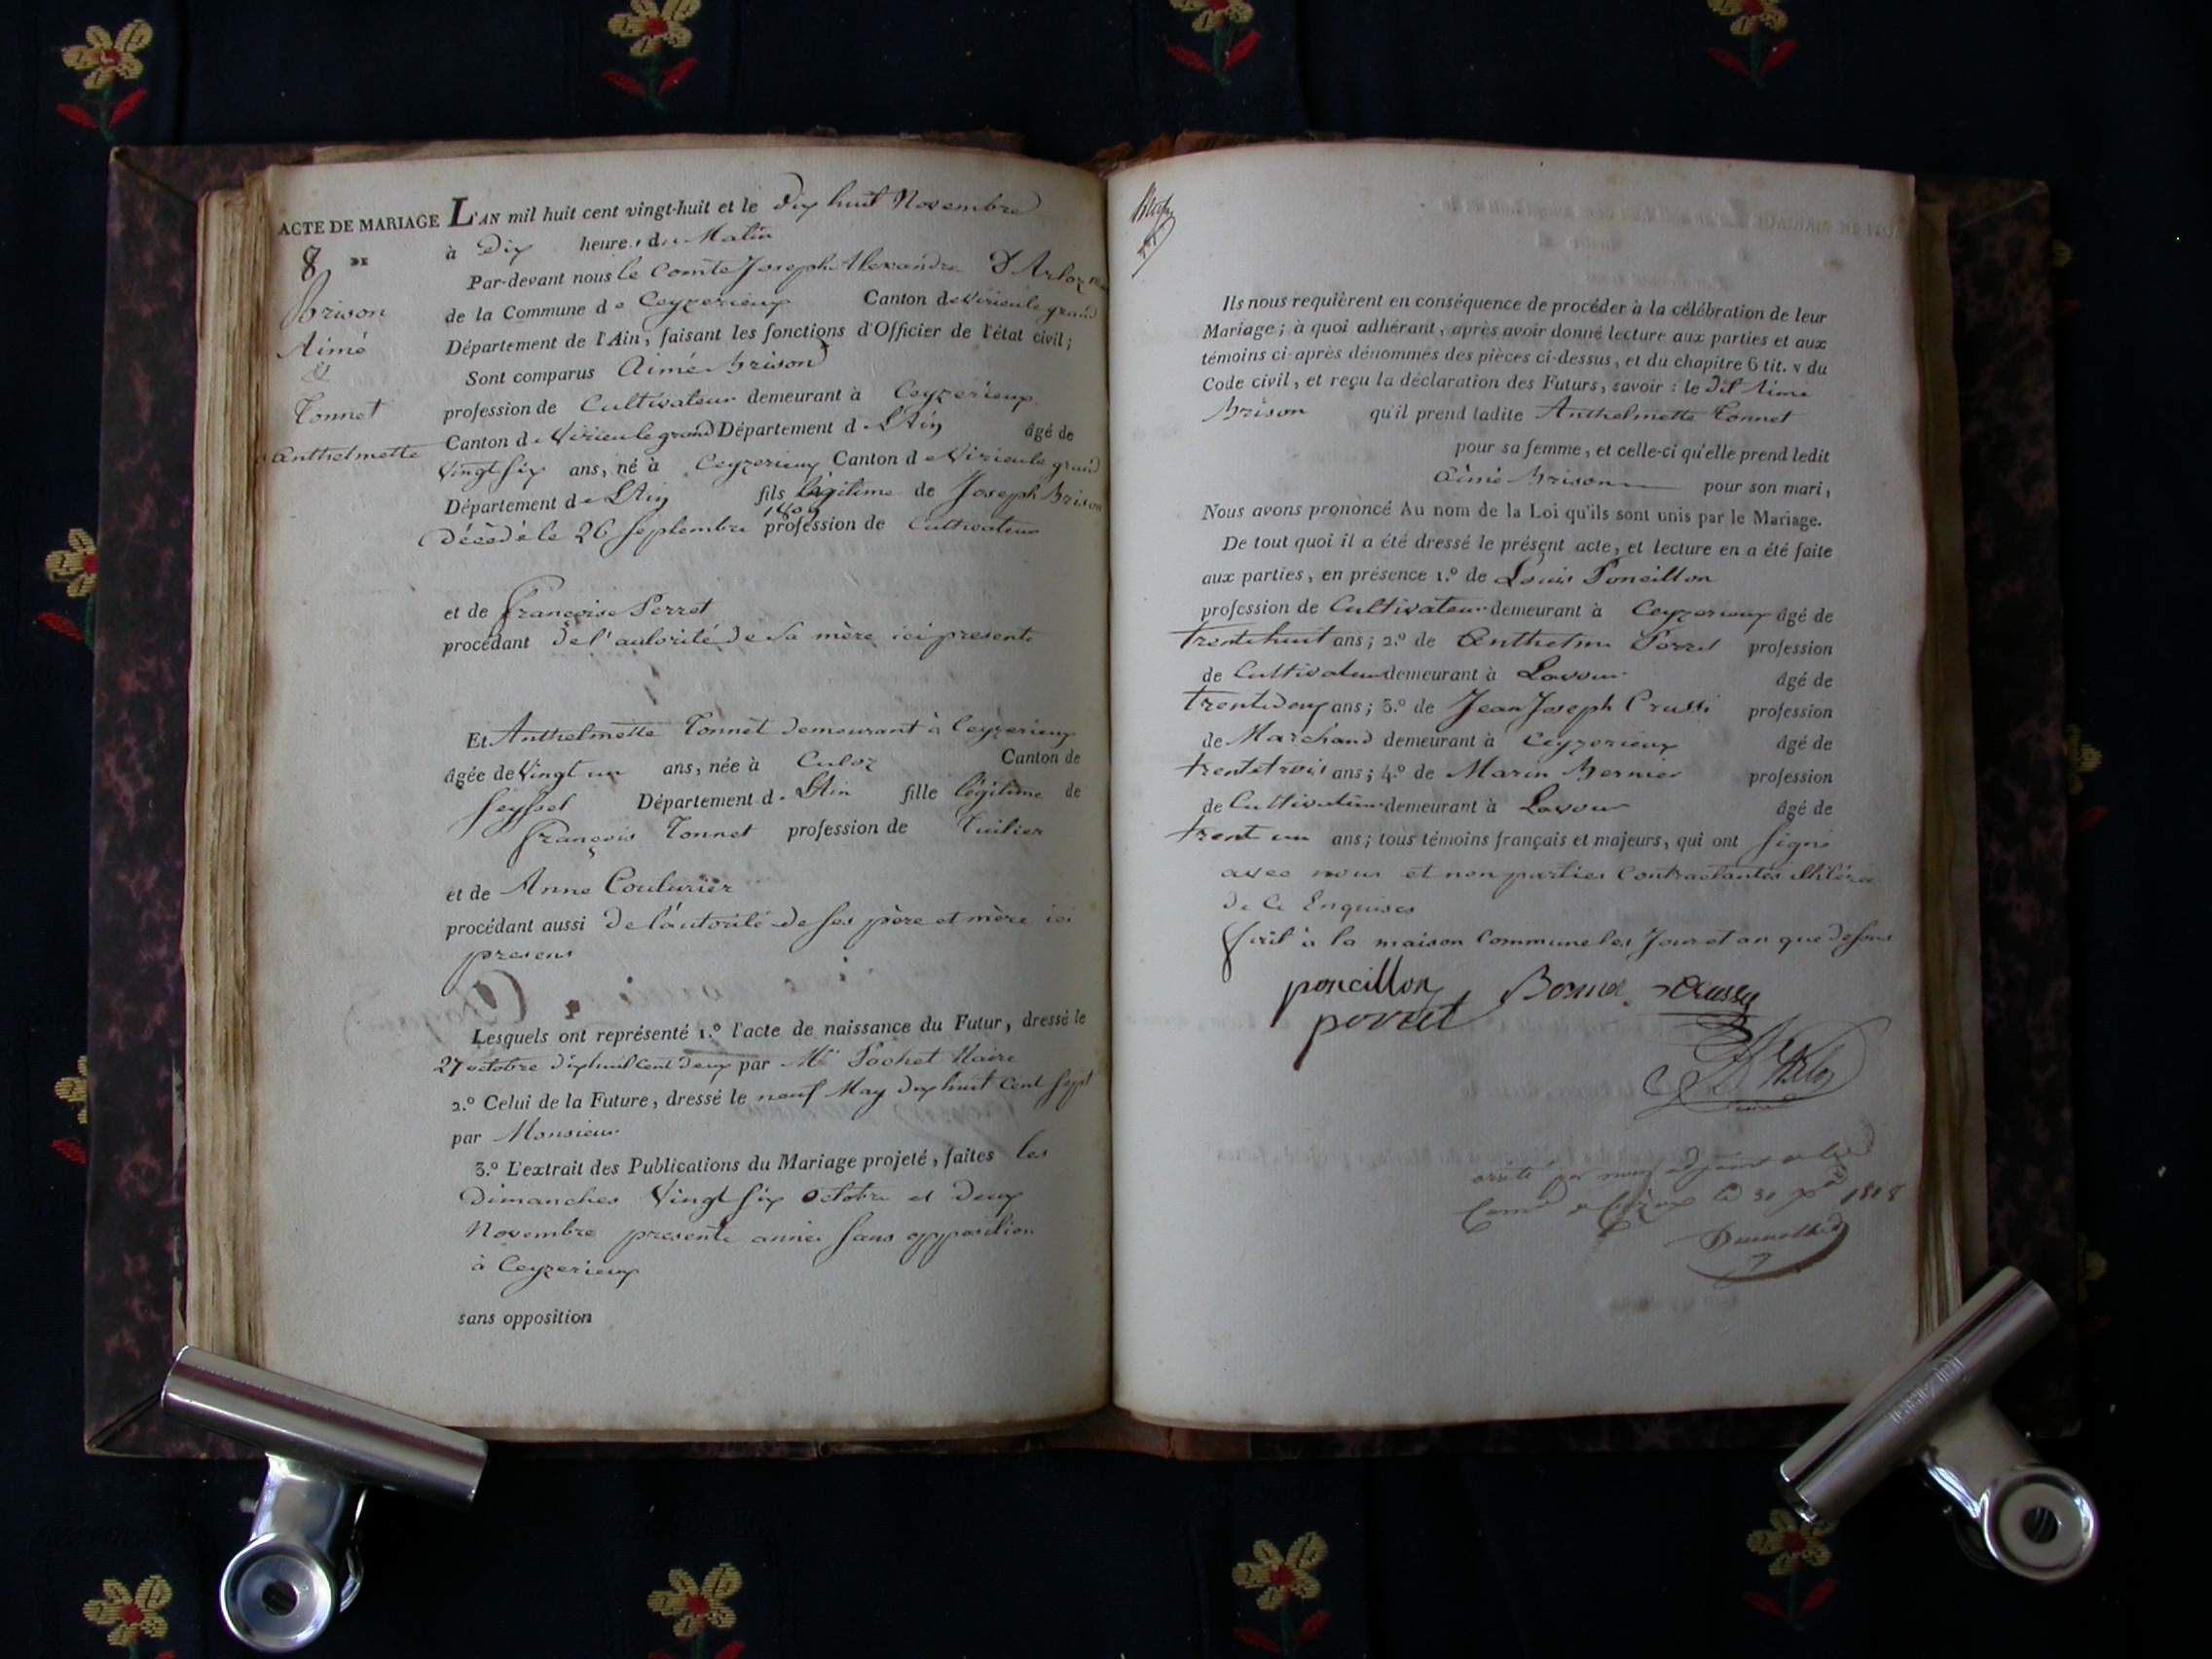 ACTE DE MARIAGE L'AN mil huit cent vingt-huit et le dix huit Novembre
8 DE à Dix heures du Matin
Par-devant nous le Comte Joseph Alexandre D'Arloz
Brison de la Commune de Ceyzerieux Canton de Virieu le grand
Aimé Département de l'Ain, faisant les fonctions d'Officier de l'état civil;
& Sont comparus Aimé Brison
Tonnet profession de Cultivateur demeurant à Ceyzerieux
Anthelmette Canton de Virieu le grand Département de L'Ain âgé de
Vingt six ans, né à Ceyzerieux Canton de Virieu le grand
Département de L'Ain fils légitime de Joseph Brison
Décédé le 26 Septembre 1809 profession de Cultivateur
et de Françoise Perret
procédant de l'autorité de Sa mère ici presente
Et Anthelmette Tonnet demeurant à Ceyzerieux
âgée de Vingt un ans, née à Culoz Canton de
Seyssel Département de L'Ain fille légitime de
François Tonnet profession de Tuilier
et de Anne Couturier
procédant aussi de l'autorité de Ses père et mère ici
presens
Lesquels ont représenté 1.º l'acte de naissance du Futur, dressé le
27 octobre dix huit cent deux par Mr Pochet Maire
2.º Celui de la Future, dressé le neuf May dix huit cent sept
par Monsieur
3.º L'extrait des Publications du Mariage projeté, faites les
Dimanches Vingt six Octobre et deux
Novembre presente année Sans opposition
à Ceyzerieux
sans opposition
Ils nous requièrent en conséquence de procéder à la célébration de leur
Mariage; à quoi adhérant, après avoir donné lecture aux parties et aux
témoins ci-après dénommés des pièces ci-dessus, et du chapitre 6 tit. v du
Code civil, et reçu la déclaration des Futurs, savoir: le dit Aimé
Brison qu'il prend ladite Anthelmette Tonnet
pour sa femme, et celle-ci qu'elle prend ledit
Aimé Brison pour son mari,
Nous avons prononcé Au nom de la Loi qu'ils sont unis par le Mariage.
De tout quoi il a été dressé le présent acte, et lecture en a été faite
aux parties, en présence 1.º de Louis Poncillon
profession de Cultivateur demeurant à Ceyzerieux âgé de
trente huit ans; 2.º de Anthelme Perret profession
de Cultivateur demeurant à Lavour âgé de
trente deux ans; 3.º de Jean Joseph Crussi profession
de Marchand demeurant à Ceyzerieux âgé de
trente trois ans; 4.º de Marin Bernier profession
de Cultivateur demeurant à Lavour âgé de
trent un ans; tous témoins français et majeurs, qui ont Signé
avec nous et non parties Contractantes illitérées
de Ce Enquises
Fait à la maison Commune les Jour et an que dessus
poncillon Crussy
perret
arrêté par nous adjoint
le 31 1828